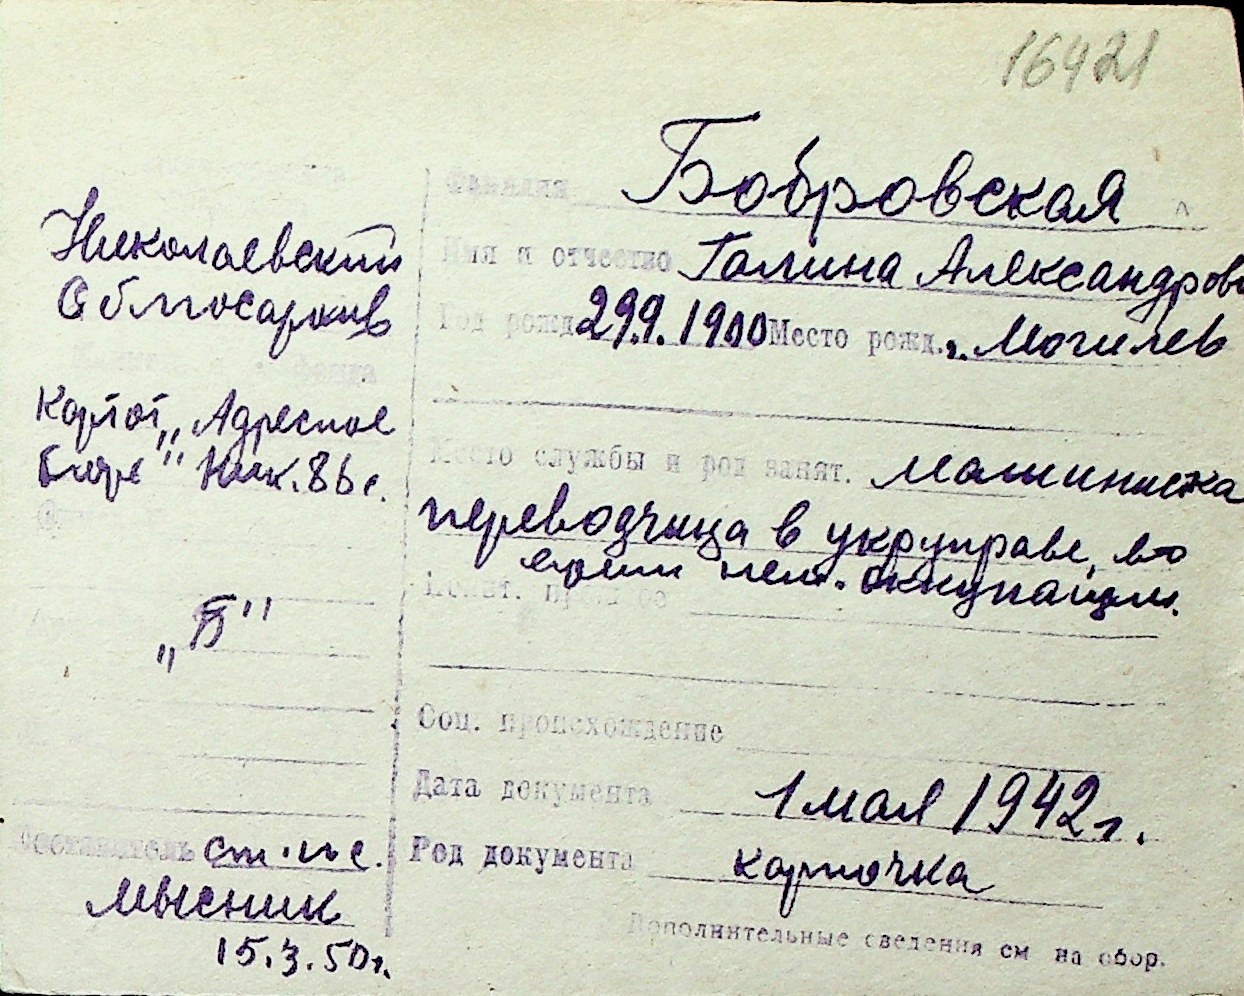 16421
Фамилия Бобровская
Имя и отчество Галина Александров
Год рожд 29.9.1900 Место рожд. г. Могилев
Место службы и род занят. машинистка
переводчица в укруправе, во
время нем. оккупации.
Соц. происхождение
Дата документа 1 мая 1942 г.
Род документа карточка
Дополнительные сведения см на обор.
Николаевский
Облгосархив
Картот. „Адресное
бюро" Ник. 86 с.
„Б"
Составитель ст. н. с.
Мысник
15.3.50г.